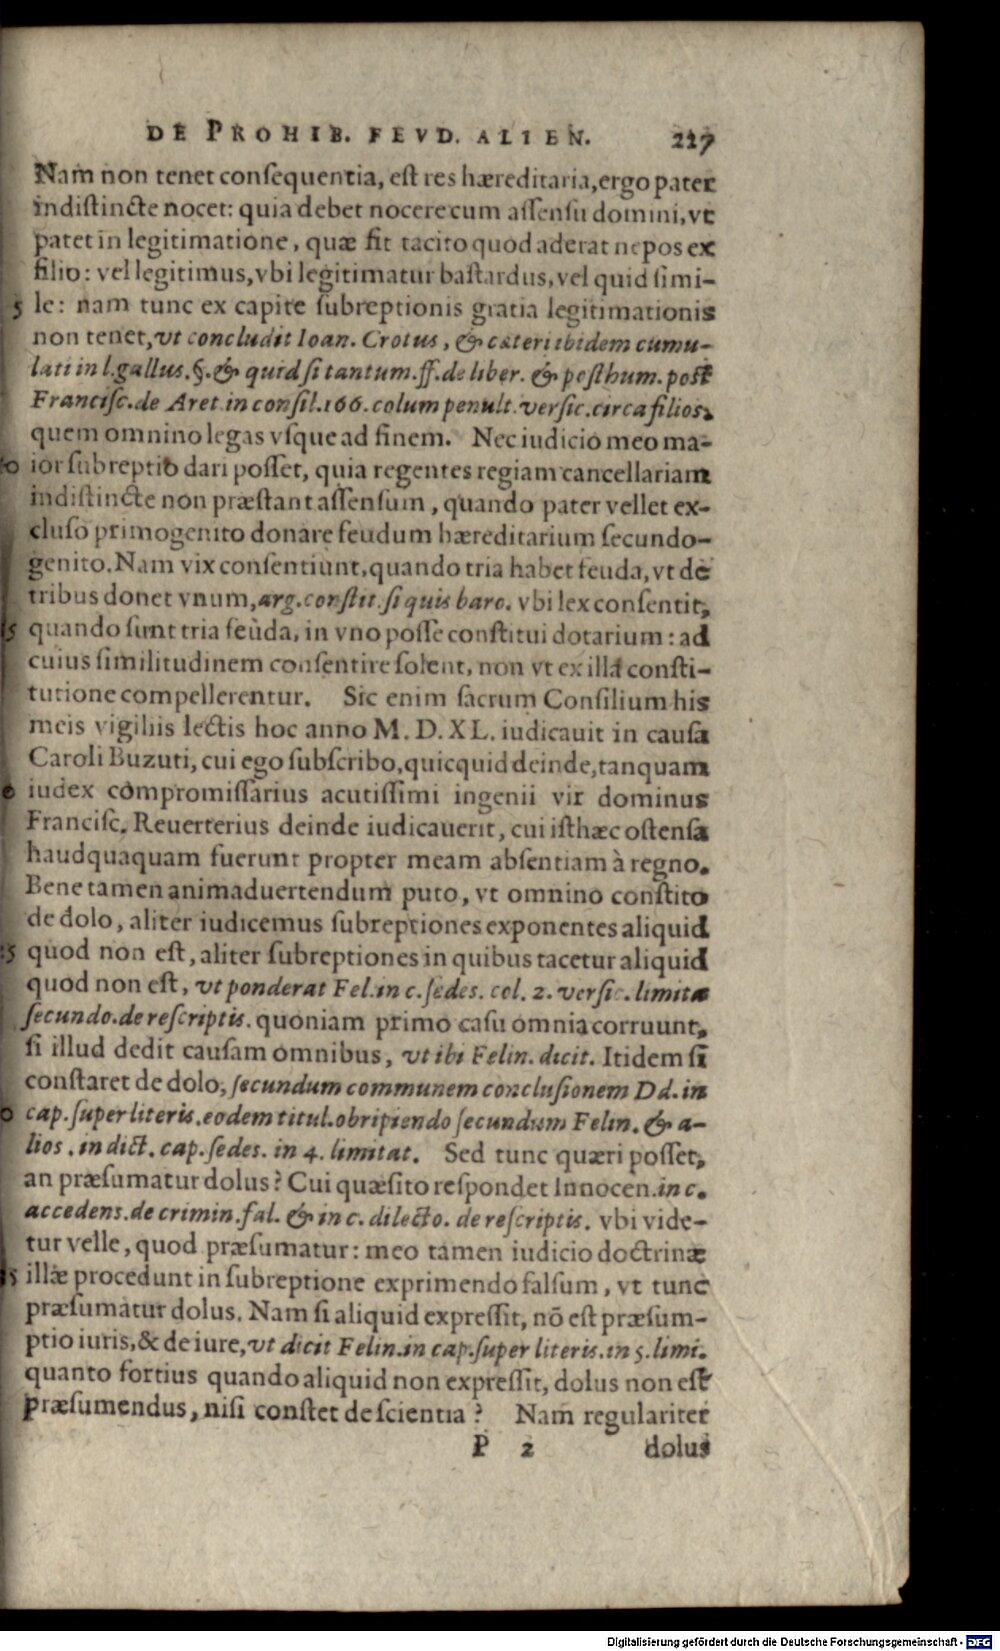 DE PROHIB. FEVD. ALIEN. 227
Nam non tenet consequentia, est res hæreditaria, ergo pater
indistincte nocet: quia debet nocere cum assensu domini, vt
patet in legitimatione, quæ fit tacito quod aderat nepos ex
filio: vel legitimus, vbi legitimatur bastardus, vel quid simi-
5 le: nam tunc ex capite subreptionis gratia legitimationis
non tenet, vt concludit Ioan. Crotus, & cæteri ibidem cumu-
lati in l. gallus. §. & quid si tantum. ff. de liber. & posthum. post
Francisc. de Aret. in consil. 166. colum penult. versic. circa filios.
quem omnino legas vsque ad finem. Nec iudicio meo ma-
10 ior subreptio dari posset, quia regentes regiam cancellariam
indistincte non præstant assensum, quando pater vellet ex-
cluso primogenito donare feudum hæreditarium secundo-
genito. Nam vix consentiunt, quando tria habet feuda, vt de
tribus donet vnum, arg. constit. si quis baro. vbi lex consentit,
15 quando sunt tria feuda, in vno posse constitui dotarium: ad
cuius similitudinem consentire solent, non vt ex illa consti-
tutione compellerentur. Sic enim sacrum Consilium his
meis vigiliis lectis hoc anno M. D. XL. iudicauit in causa
Caroli Buzuti, cui ego subscribo, quicquid deinde, tanquam
0 iudex compromissarius acutissimi ingenii vir dominus
Francisc. Reuerterius deinde iudicauerit, cui isthæc ostensa
haudquaquam fuerunt propter meam absentiam à regno.
Bene tamen animaduertendum puto, vt omnino constito
de dolo, aliter iudicemus subreptiones exponentes aliquid
25 quod non est, aliter subreptiones in quibus tacetur aliquid
quod non est, vt ponderat Fel. in c. sedes. col. 2. versic. limita
secundo. de rescriptis. quoniam primo casu omnia corruunt,
si illud dedit causam omnibus, vt ibi Felin. dicit. Itidem si
constaret de dolo, secundum communem conclusionem Dd. in
0 cap. super literis. eodem titul. obripiendo secundum Felin. & a-
lios. in dict. cap. sedes. in 4. limitat. Sed tunc quæri posset,
an præsumatur dolus? Cui quæsito respondet Innocen. in c.
accedens. de crimin. fal. & in c. dilecto. de rescriptis. vbi vide-
tur velle, quod præsumatur: meo tamen iudicio doctrinæ
35 illæ procedunt in subreptione exprimendo falsum, vt tunc
præsumatur dolus. Nam si aliquid expressit, nõ est præsum-
ptio iuris, & de iure, vt dicit Felin. in cap. super literis. in 5. limi.
quanto fortius quando aliquid non expressit, dolus non est
præsumendus, nisi constet de scientia? Nam regulariter
P 2 dolus
Digitalisierung gefördert durch die Deutsche Forschungsgemeinschaft - DFG